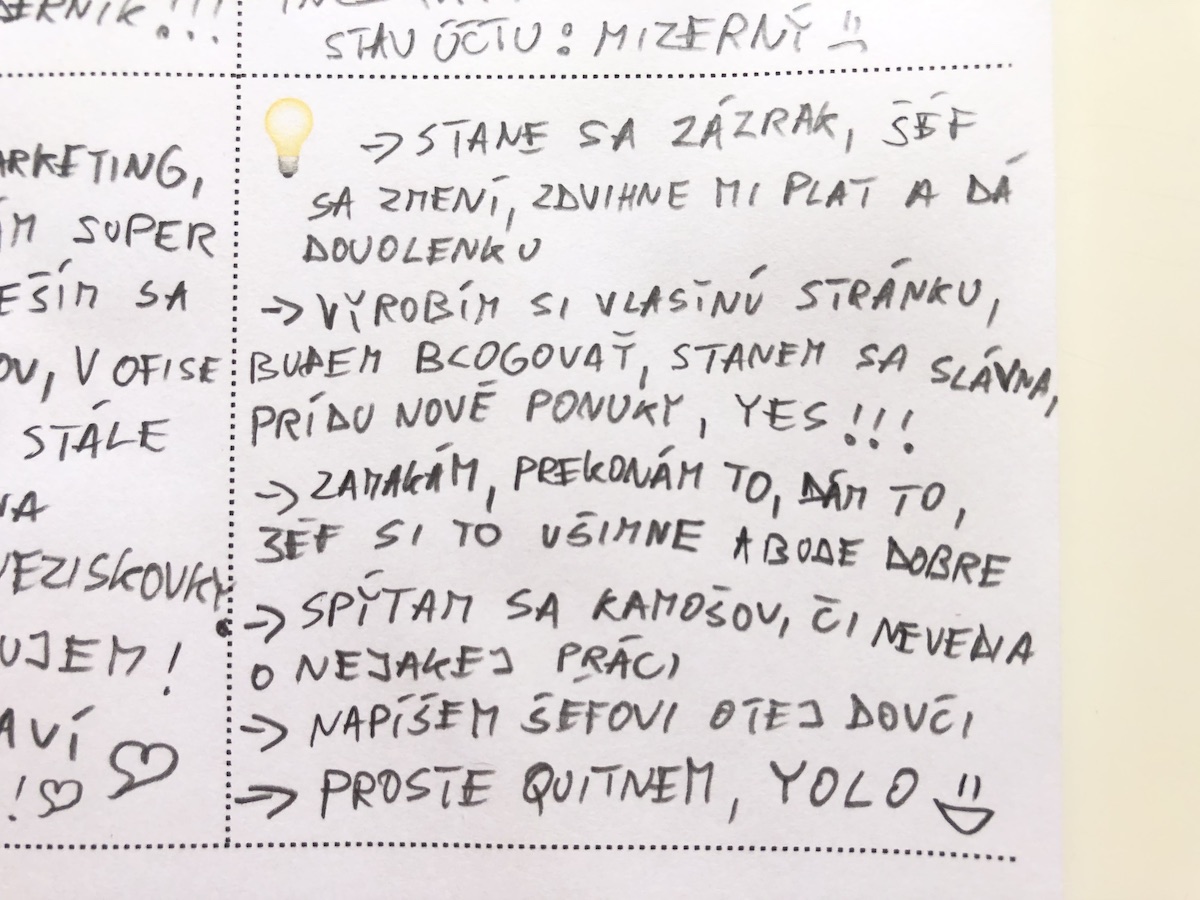 STAV ÚČTU: MIZERNÝ
MARKETING,
SUPER
SA
V OFISE
STÁLE
NEZISKOVKY
!
! 
→ STANE SA ZÁZRAK, ŠÉF
SA ZMENÍ, ZDVIHNE MI PLAT A DÁ
DOVOLENKU
→ VYROBÍM SI VLASTNÚ STRÁNKU,
BUDEM BLOGOVAŤ, STANEM SA SLÁVNA,
PRÍDU NOVÉ PONUKY, YES!!!
→ ZAMAKÁM, PREKONÁM TO, DÁM TO,
ŠÉF SI TO VŠIMNE A BUDE DOBRE
→ SPÝTAM SA KAMOŠOV, ČI NEVEDIA
O NEJAKEJ PRÁCI
→ NAPÍŠEM ŠÉFOVI O TEJ DOVČI
→ PROSTE QUITNEM, YOLO